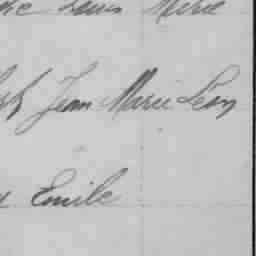 Louis Marie
Jean Marie Léon
Emile